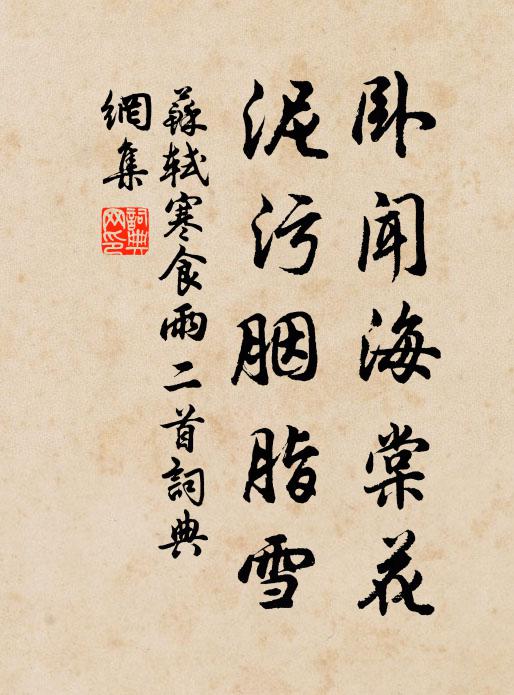 卧闻海棠花
泥污胭脂雪
蘇軾寒食雨二首詞典
網集
詞典网印